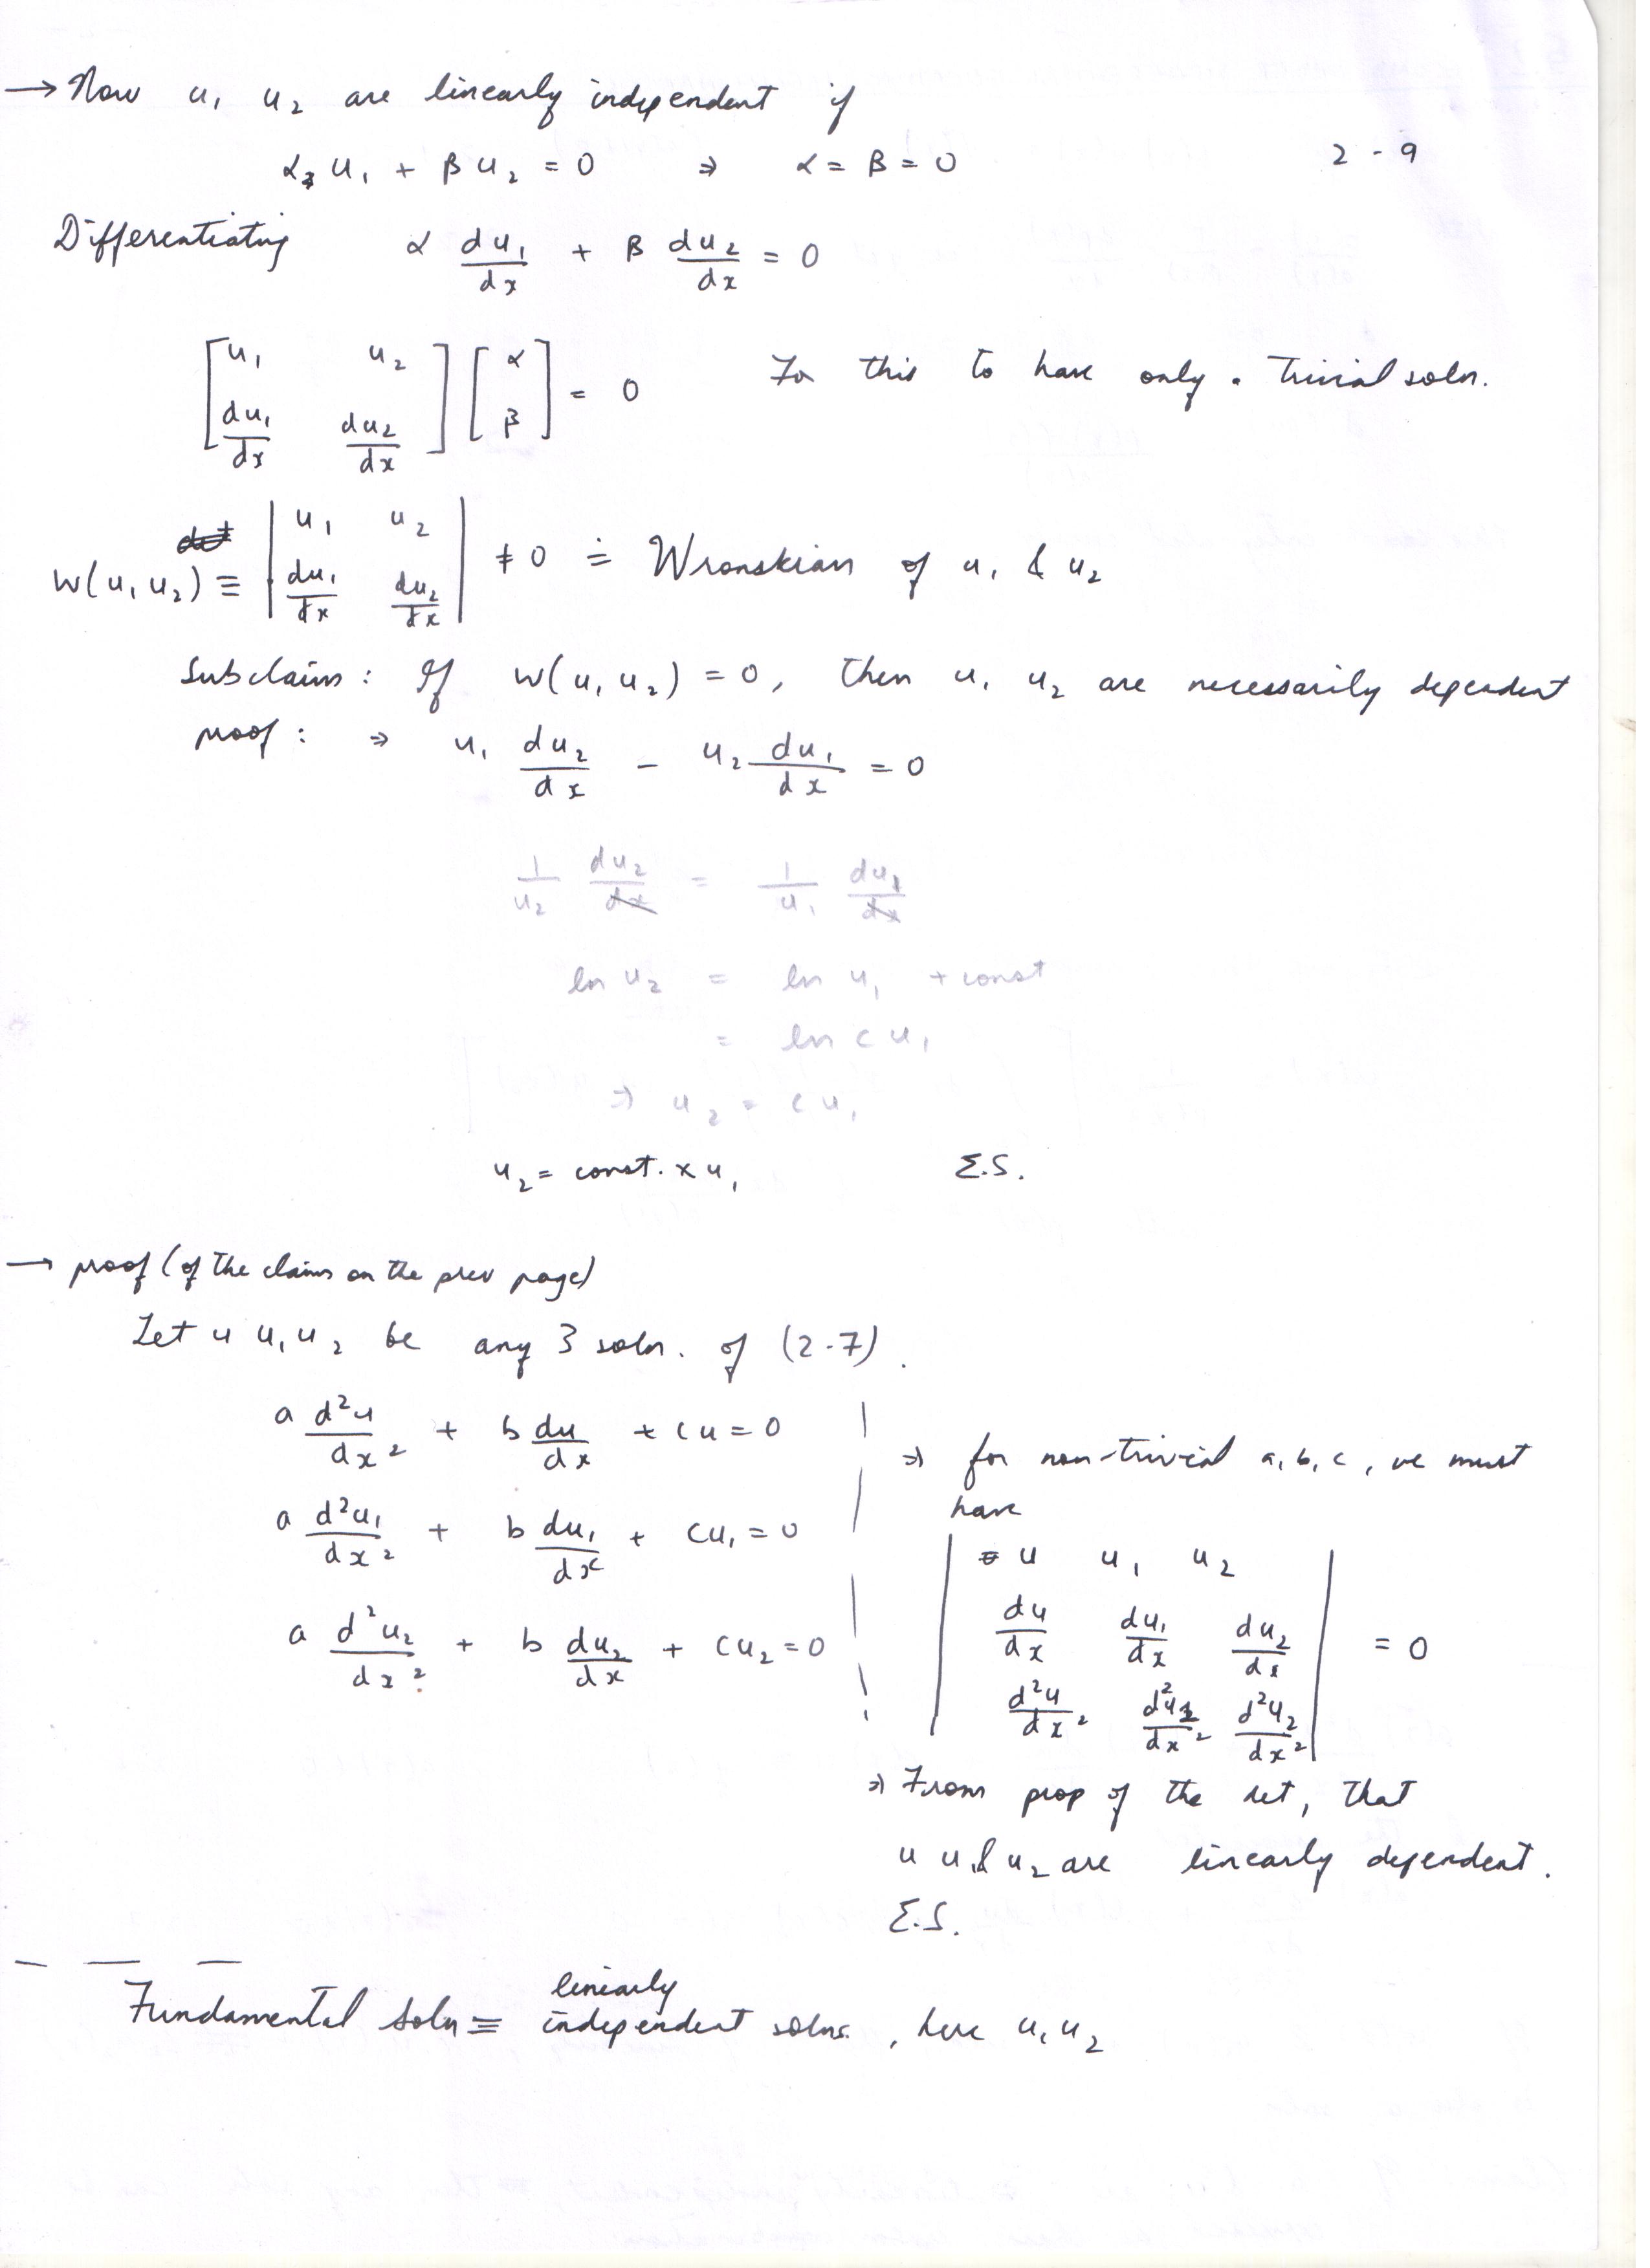 → Now u₁ u₂ are linearly independent if
α u₁ + β u₂ = 0 ⇒ α = β = 0 2 - 9
Differentiating α du₁/dx + β du₂/dx = 0
[u₁ u₂; du₁/dx du₂/dx] [α; β] = 0 For this to have only a trivial soln.
W(u₁ u₂) ≡ |u₁ u₂; du₁/dx du₂/dx| ≠ 0 ≐ Wronskian of u₁ & u₂
Subclaim : If W(u₁ u₂) = 0, then u₁ u₂ are necessarily dependent
proof : ⇒ u₁ du₂/dx - u₂ du₁/dx = 0
1/u₂ du₂/dx = 1/u₁ du₁/dx
ln u₂ = ln u₁ + const
= ln c u₁
⇒ u₂ = c u₁
u₂ = const. x u₁ E.S.
→ proof (of the claim on the prev page)
Let u u₁ u₂ be any 3 soln. of (2-7).
a d²u/dx² + b du/dx + cu = 0
a d²u₁/dx² + b du₁/dx + cu₁ = 0
a d²u₂/dx² + b du₂/dx + cu₂ = 0
⇒ for non-trivial a, b, c, we must
have
|u u₁ u₂; du/dx du₁/dx du₂/dx; d²u/dx² d²u₁/dx² d²u₂/dx²| = 0
⇒ From prop of the det, that
u u₁ & u₂ are linearly dependent.
E.S.
Fundamental soln ≡ linearly independent solns. , here u₁ u₂